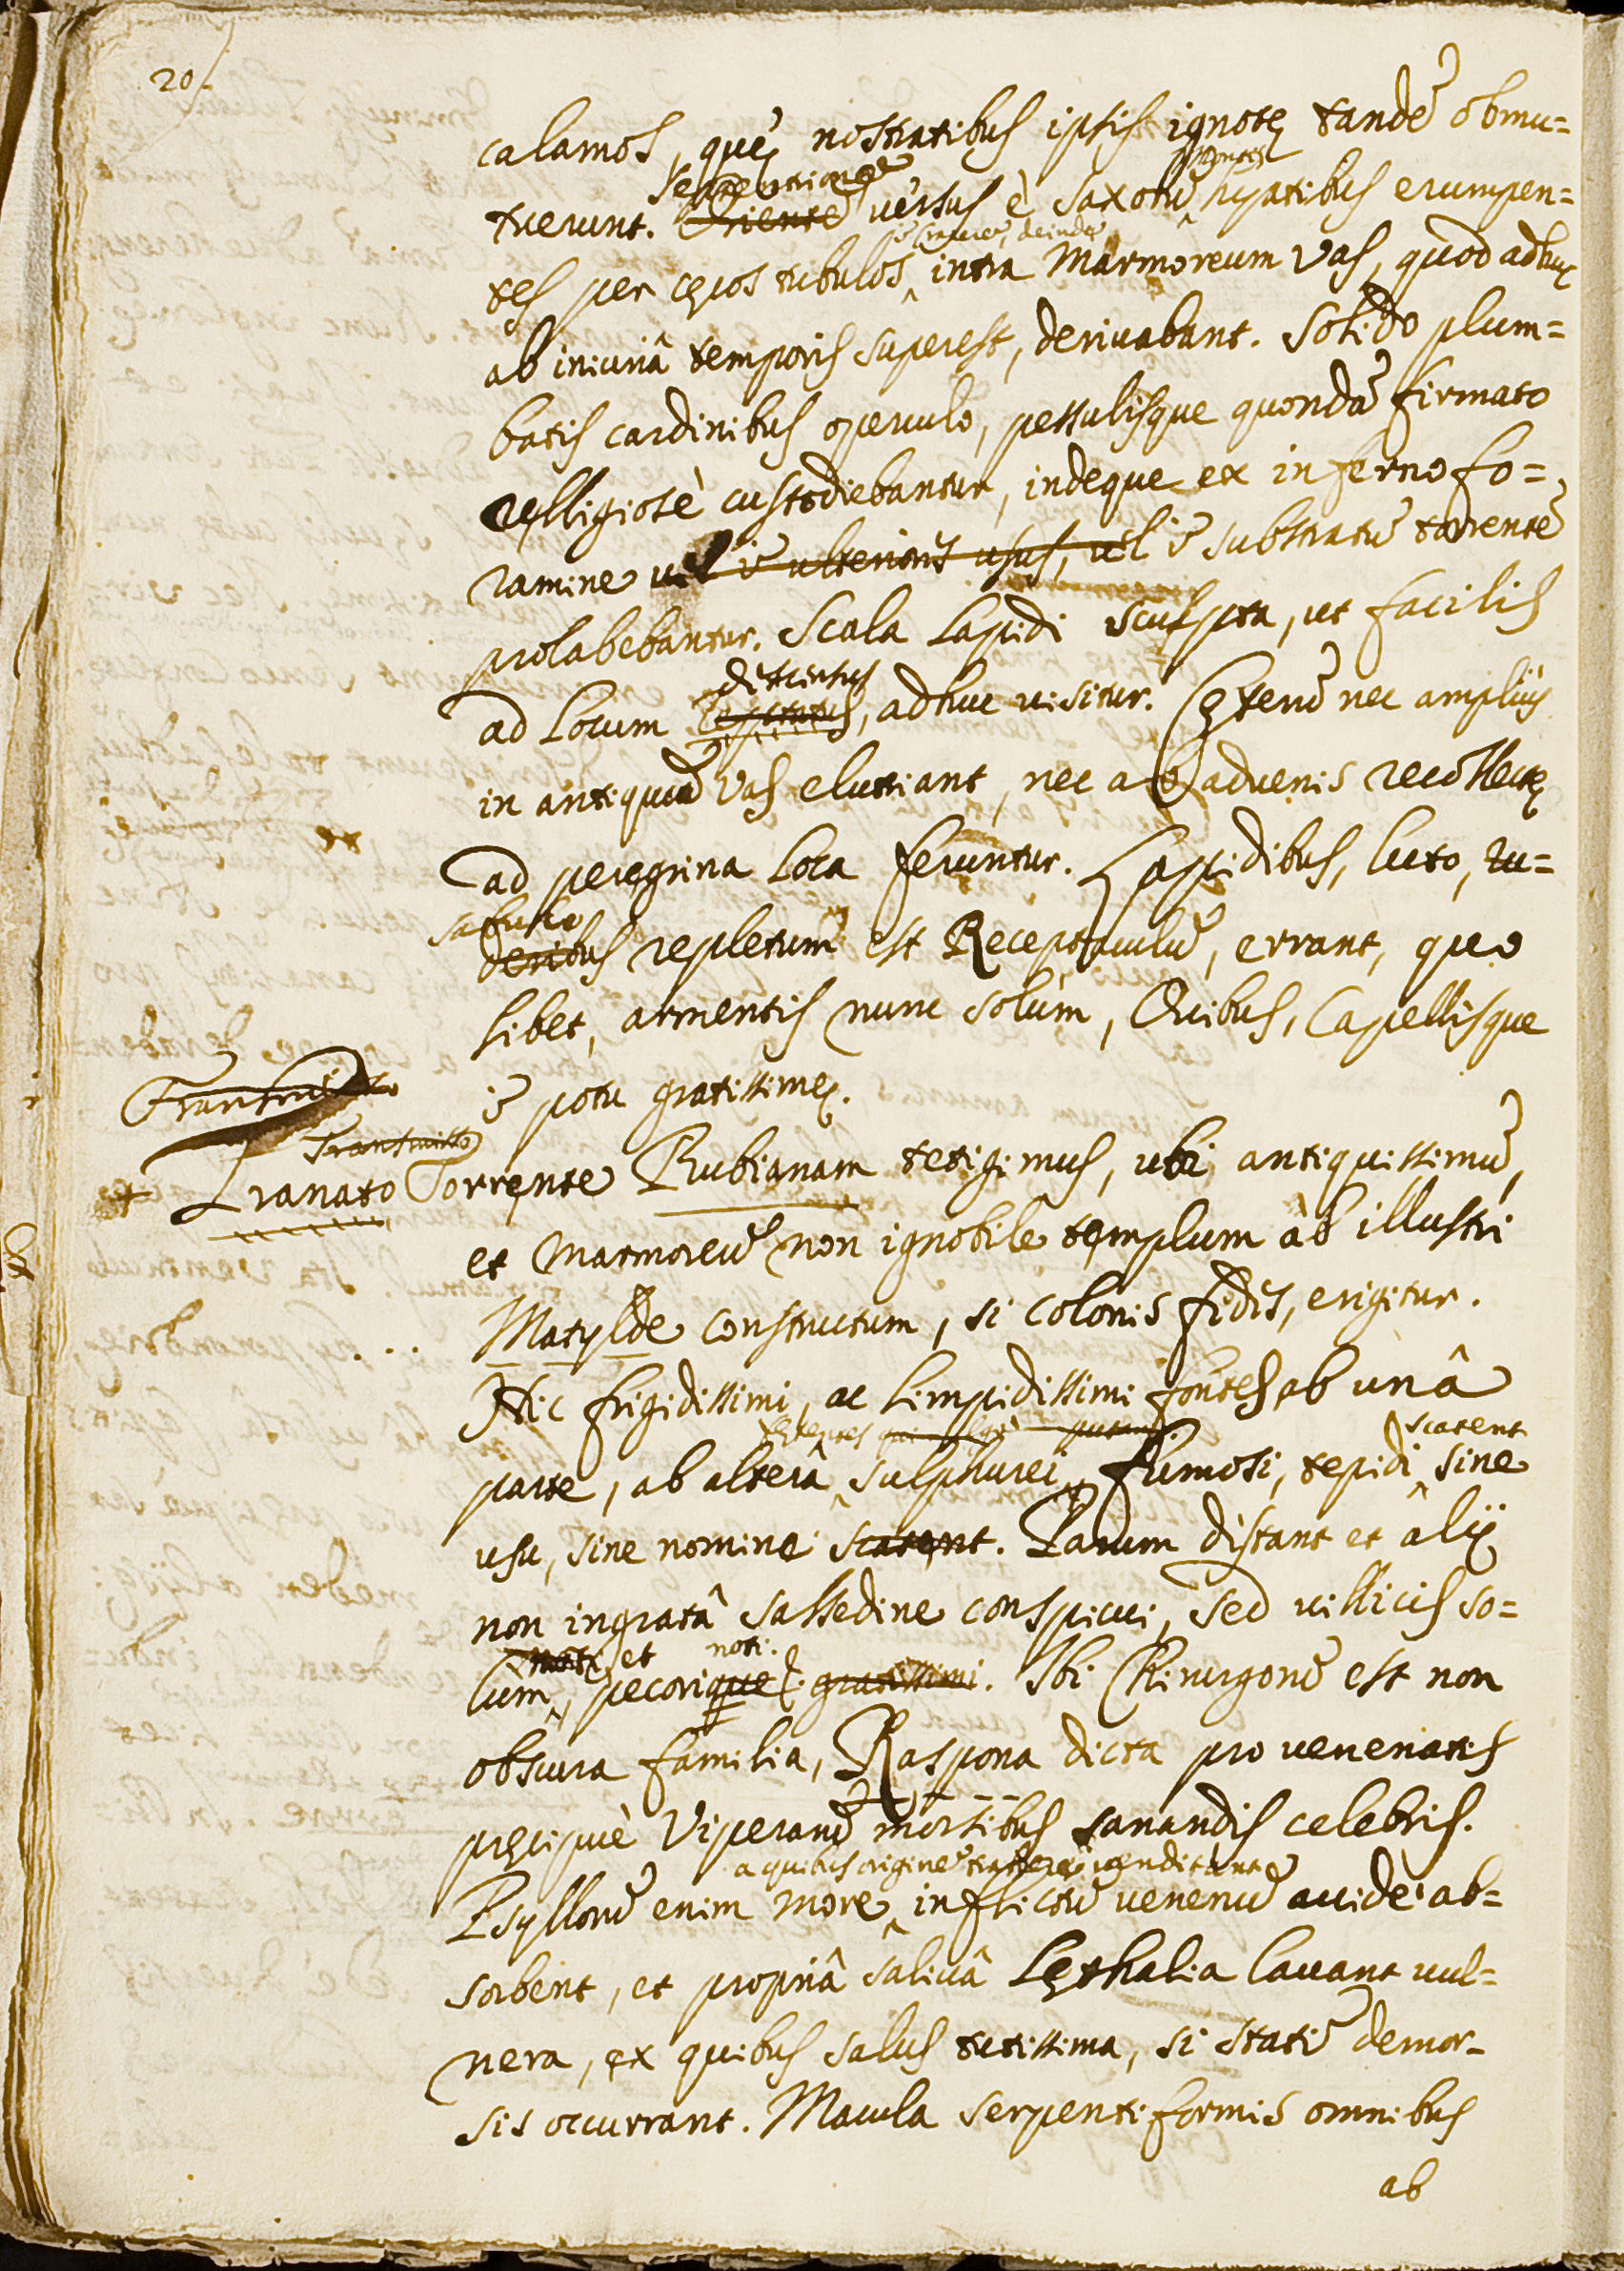 20
calamos, quę nostratibus ipsis ignotę tandẽ obmu=
Septentrionẽ
tuerunt. Orientẽ versus è saxorũ hyatibus erumpen=
deinde
tes per cęcos tubulos intra Marmoreum Vas, quod adhuc
ab iniuriâ temporis superest, deriuabant. Solido plum=
batis cardinibus operculo, pessulisque quondã firmato
relligiosè custodiebantur, indeque ex inferno fo=
ramine uel ĩ ulterioris usus, uel ĩ substratũ torrentẽ
prolabebantur. Scala Lapidi sculpta, ut facilis
ad Locum, adhuc uisitur. Cęterũ nec ampliùs
in antiquũ Vas eluttiant, nec ab aduenis recollectę
ad peregrina Loca feruntur. Lapidibus, luto, ru=
deribus repletum est Receptaculũ, errant, quo
libet, armentis nunc solùm, Ouibus, Capellisque
ĩ potu gratissimę.
Transmisso
Tranato Torrente Rubianam tetigimus, ubi antiquissimũ,
et Marmoreũ non ignobile templum ab illustri
Matylde constructum, si colonis fides, erigitur.
Hic frigidissimi, ac limpidissimi fontes ab unâ
scatent
parte, ab alterâ sulphurei, fumosi, tepidi sine
usu, sine nomine scatent. Parum distant et alij
non ingratâ salsedine conspicui, sed uillicis so=
et noti.
lum, pecorique gratissimi. Ibi Chirurgorũ est non
obscura familia, Raspona dicta pro uenenatis
pręcipuè Viperarũ morsibus sanandis celebris.
a quibus originẽ trahere uenditant
Psyllorũ enim more inflictũ uenenũ auidè ab=
sorbent, et propriâ saliuâ Lęthalia lauant uul=
nera, ex quibus salus tutissima, si statĩ demor-
sis occurrant. Macula serpentiformis omnibus
ab